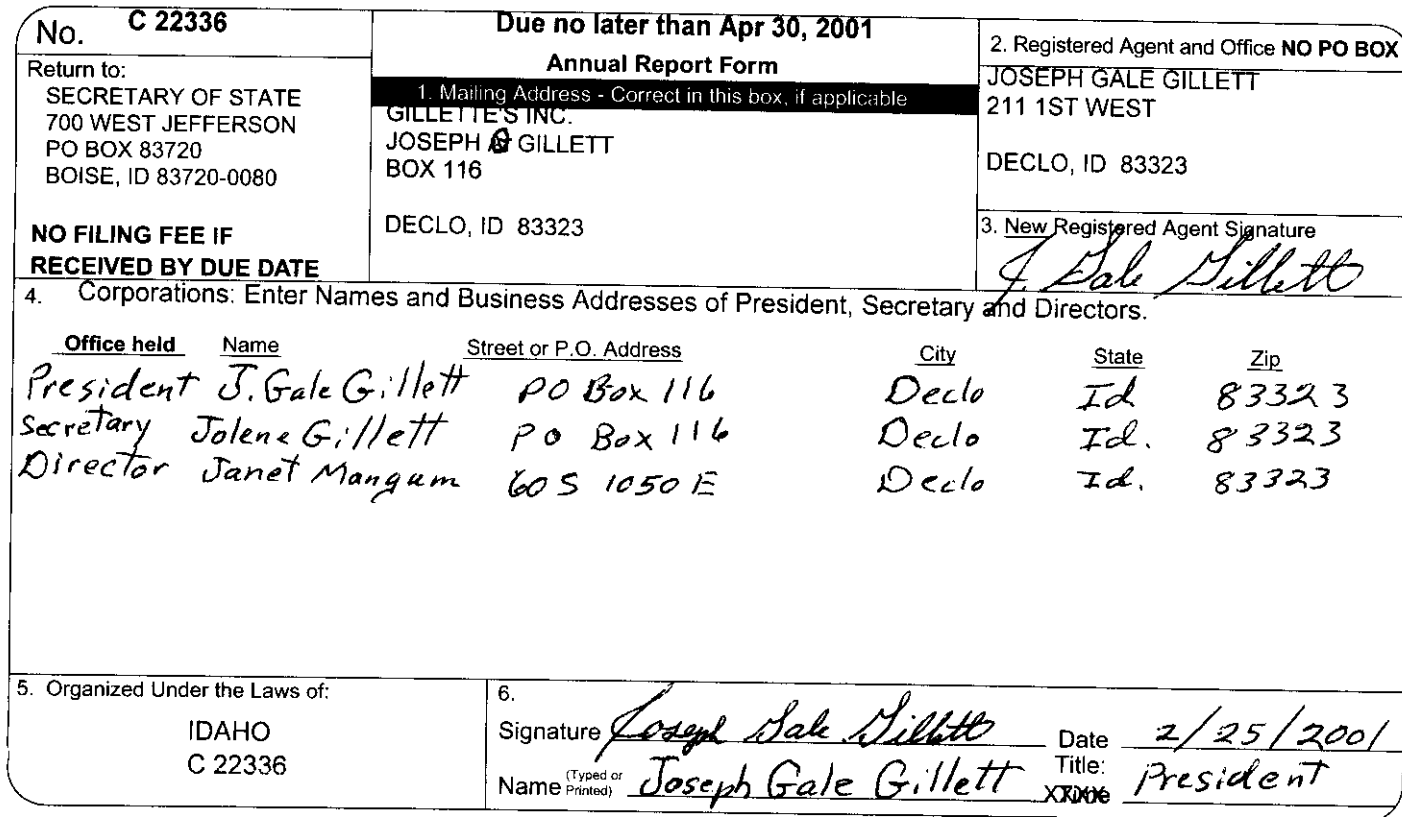 No. C 22336
Return to:
SECRETARY OF STATE
700 WEST JEFFERSON
PO BOX 83720
BOISE, ID 83720-0080
NO FILING FEE IF
RECEIVED BY DUE DATE
Due no later than Apr 30, 2001
Annual Report Form
1. Mailing Address - Correct in this box, if applicable
GILLETTE'S INC.
JOSEPH G GILLETT
BOX 116
DECLO, ID 83323
2. Registered Agent and Office NO PO BOX
JOSEPH GALE GILLETT
211 1ST WEST
DECLO, ID 83323
3. New Registered Agent Signature
J. Gale Gillett
4. Corporations: Enter Names and Business Addresses of President, Secretary and Directors.
Office held Name Street or P.O. Address City State Zip
President J. Gale Gillett PO Box 116 Declo Id 83323
Secretary Jolene Gillett PO Box 116 Declo Id. 83323
Director Janet Mangum 60 S 1050 E Declo Id. 83323
5. Organized Under the Laws of:
IDAHO
C 22336
6.
Signature Joseph Gale Gillett Date 2/25/2001
Name (Typed or Printed) Joseph Gale Gillett Title: President